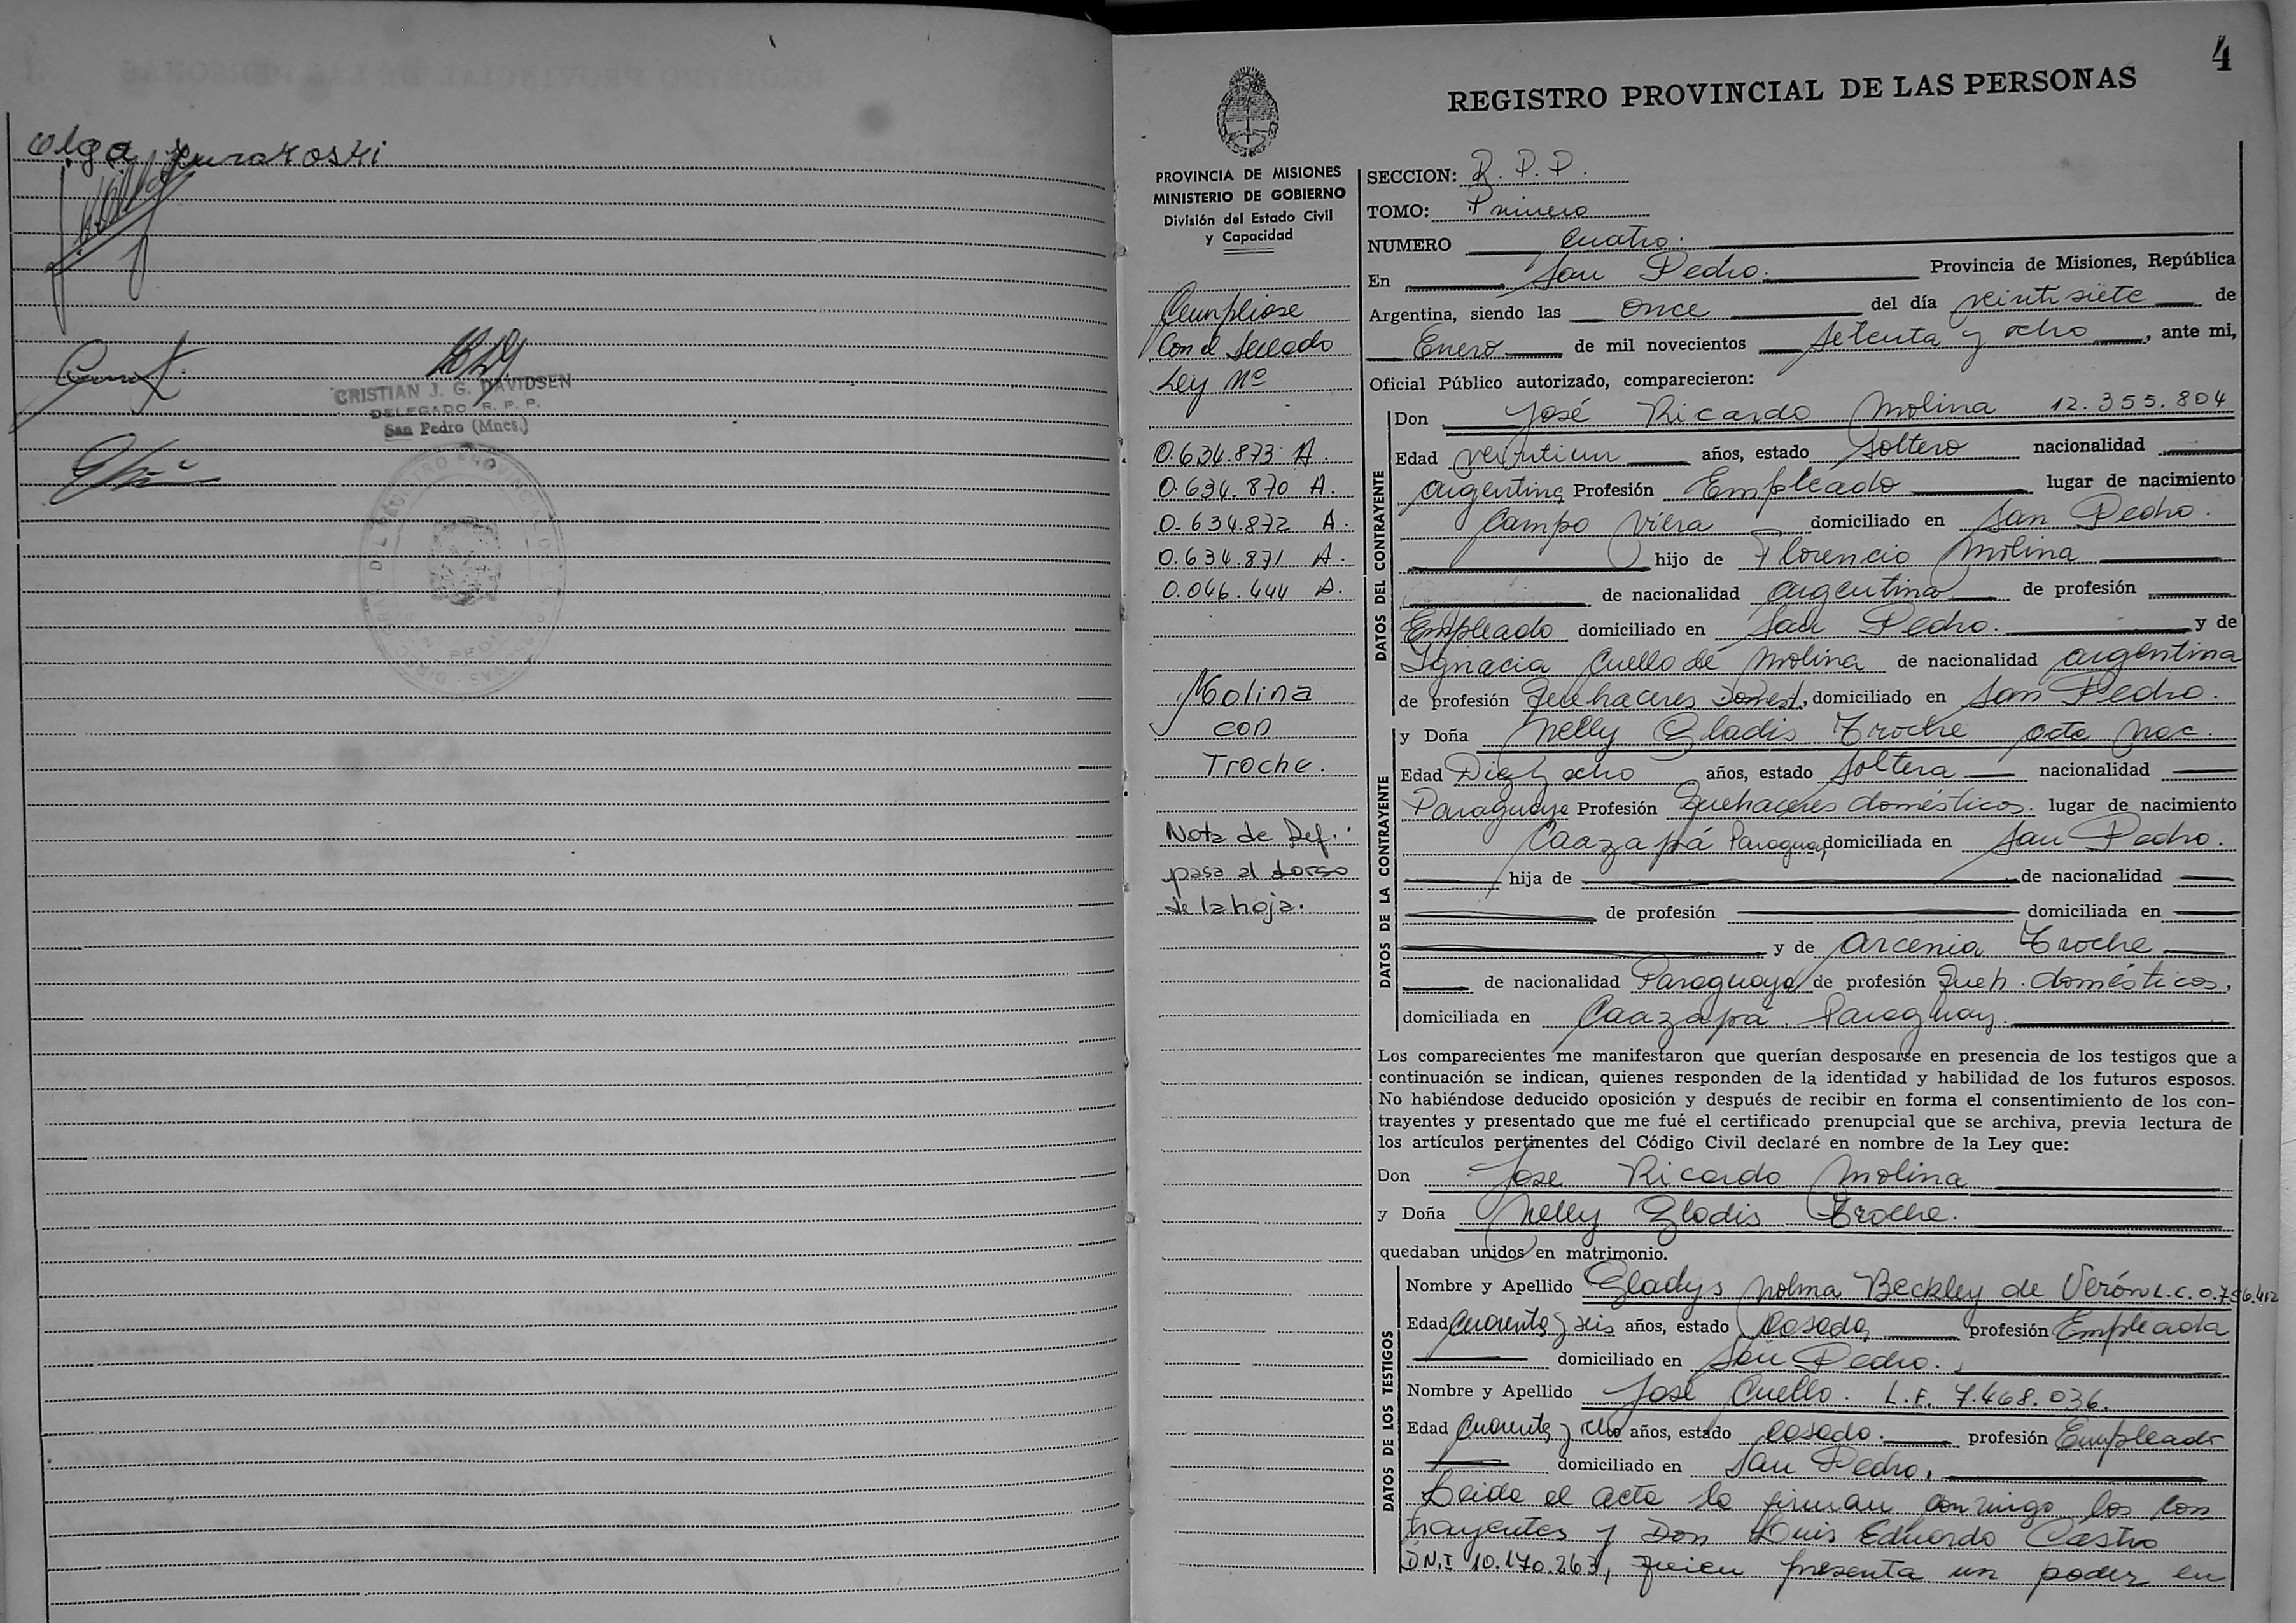 Olga
CRISTIAN J. G. DAVIDSEN
DELEGADO R. P. P.
San Pedro (Mnes.)
4
REGISTRO PROVINCIAL DE LAS PERSONAS
PROVINCIA DE MISIONES
MINISTERIO DE GOBIERNO
División del Estado Civil
y Capacidad
Cumpliose
Con el Sellado
Ley Nº
0.634.873 A.
0.634.870 A.
0.634.872 A.
0.634.871 A.
0.046.444 A.
Molina
con
Troche.
Nota de Def.:
pasa al dorso
de la hoja.
SECCION: R. P. P.
TOMO: Primero
NUMERO Cuatro.
En San Pedro. Provincia de Misiones, República
Argentina, siendo las once del día veintisiete de
Enero de mil novecientos setenta y ocho, ante mi,
Oficial Público autorizado, comparecieron:
DATOS DEL CONTRAYENTE
Don José Ricardo Molina 12.355.804
Edad veintiun años, estado Soltero nacionalidad
argentina Profesión Empleado lugar de nacimiento
Campo Viera domiciliado en San Pedro.
hijo de Florencio Molina
de nacionalidad argentina de profesión
Empleado domiciliado en San Pedro. y de
Ignacia Cuello de Molina de nacionalidad argentina
de profesión Quehaceres Domest, domiciliado en San Pedro.
DATOS DE LA CONTRAYENTE
y Doña Nelly Gladis Troche acta Nac.
Edad Diez y ocho años, estado Soltera nacionalidad
Paraguaya Profesión Quehaceres domésticos. lugar de nacimiento
Caazapá Paraguay domiciliada en San Pedro.
hija de de nacionalidad
de profesión domiciliada en
y de Arcenia Troche
de nacionalidad Paraguaya de profesión Queh. domésticos,
domiciliada en Caazapá. Paraguay.
Los comparecientes me manifestaron que querían desposarse en presencia de los testigos que a
continuación se indican, quienes responden de la identidad y habilidad de los futuros esposos.
No habiéndose deducido oposición y después de recibir en forma el consentimiento de los con-
trayentes y presentado que me fué el certificado prenupcial que se archiva, previa lectura de
los artículos pertinentes del Código Civil declaré en nombre de la Ley que:
Don Jose Ricardo Molina
y Doña Nelly Gladis Troche.
quedaban unidos en matrimonio.
DATOS DE LOS TESTIGOS
Nombre y Apellido Gladys Nolma Beckley de Verón L.C. 0.756.412
Edad Cuarenta y seis años, estado Casada, profesión Empleada
domiciliado en San Pedro.
Nombre y Apellido José Cuello. L.E. 7.468.036.
Edad Cuarenta y ocho años, estado Casado. profesión Empleado
domiciliado en San Pedro.
Leida el acta la firman conmigo los con
trayentes y Don Luis Eduardo Castro
D.N.I 10.170.263, quien presenta un poder en